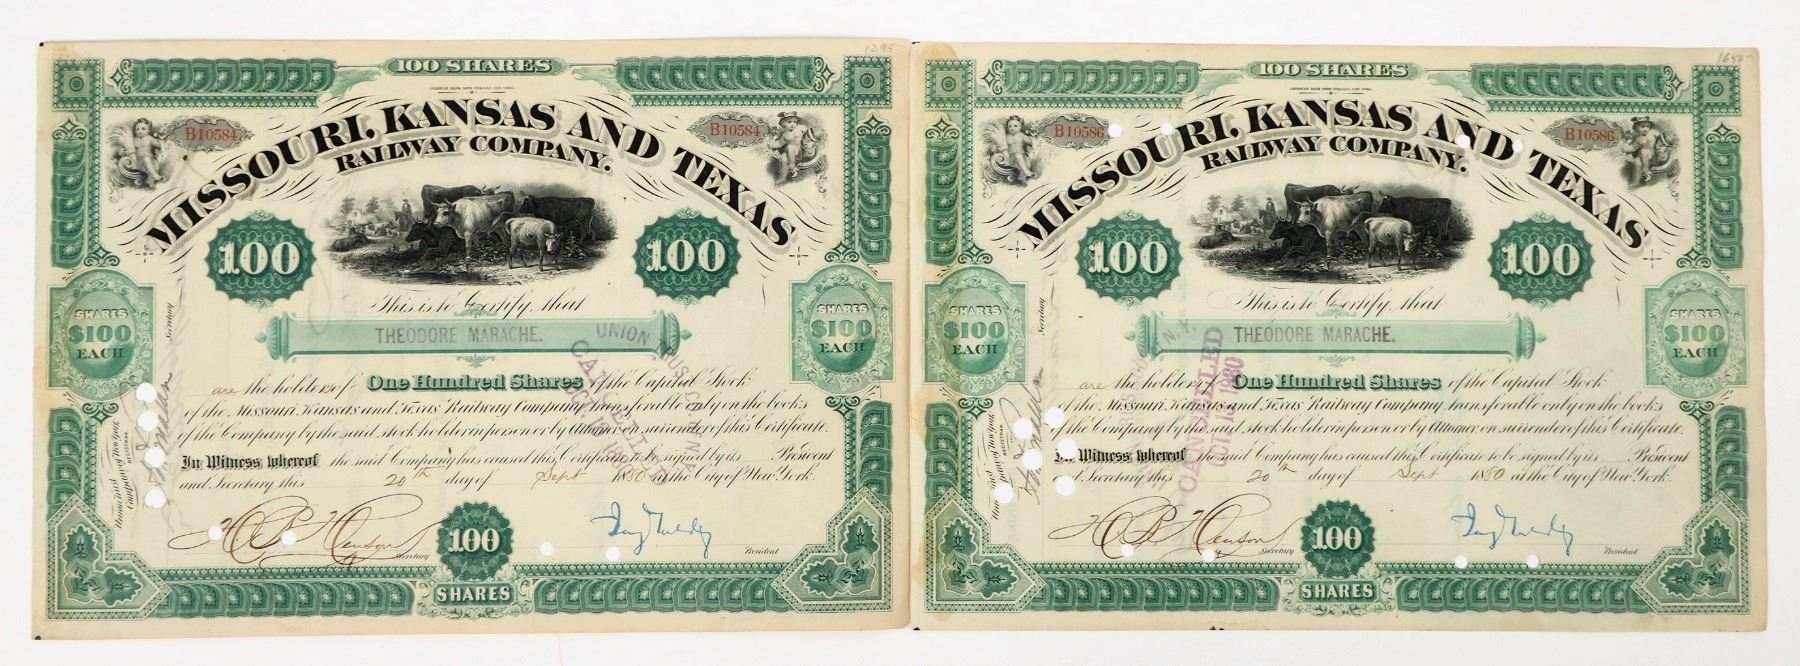 1295
100 SHARES
AMERICAN BANK NOTE COMPANY, NEW YORK.
B10584 B10584
MISSOURI, KANSAS AND TEXAS
RAILWAY COMPANY.
100 100
This is to Certify, that
THEODORE MARACHE.
UNION TRUST CO. N.Y.
CANCELLED
OCT 1880
SHARES $100 EACH
SHARES $100 EACH
Secretary
are the holders of One Hundred Shares of the Capital Stock
of the Missouri Kansas and Texas Railway Company transferable only on the books
of the Company by the said stockholder in person or by Attorney on surrender of this Certificate.
In Witness whereof the said Company has caused this Certificate to be signed by its President
and Secretary this 20th day of Sept 1880 at the City of New York.
Union Trust Company of New York
REGISTRAR
Secretary
100
President
SHARES
1650-
100 SHARES
AMERICAN BANK NOTE COMPANY, NEW YORK.
B10586 B10586
MISSOURI, KANSAS AND TEXAS
RAILWAY COMPANY.
100 100
This is to Certify, that
THEODORE MARACHE.
N.Y.
CANCELLED
OCT 1880
SHARES $100 EACH
SHARES $100 EACH
Secretary
are the holders of One Hundred Shares of the Capital Stock
of the Missouri Kansas and Texas Railway Company transferable only on the books
of the Company by the said stockholder in person or by Attorney on surrender of this Certificate.
In Witness whereof the said Company has caused this Certificate to be signed by its President
and Secretary this 20th day of Sept 1880 at the City of New York.
Company of New York
REGISTRAR
Secretary
100
President
SHARES